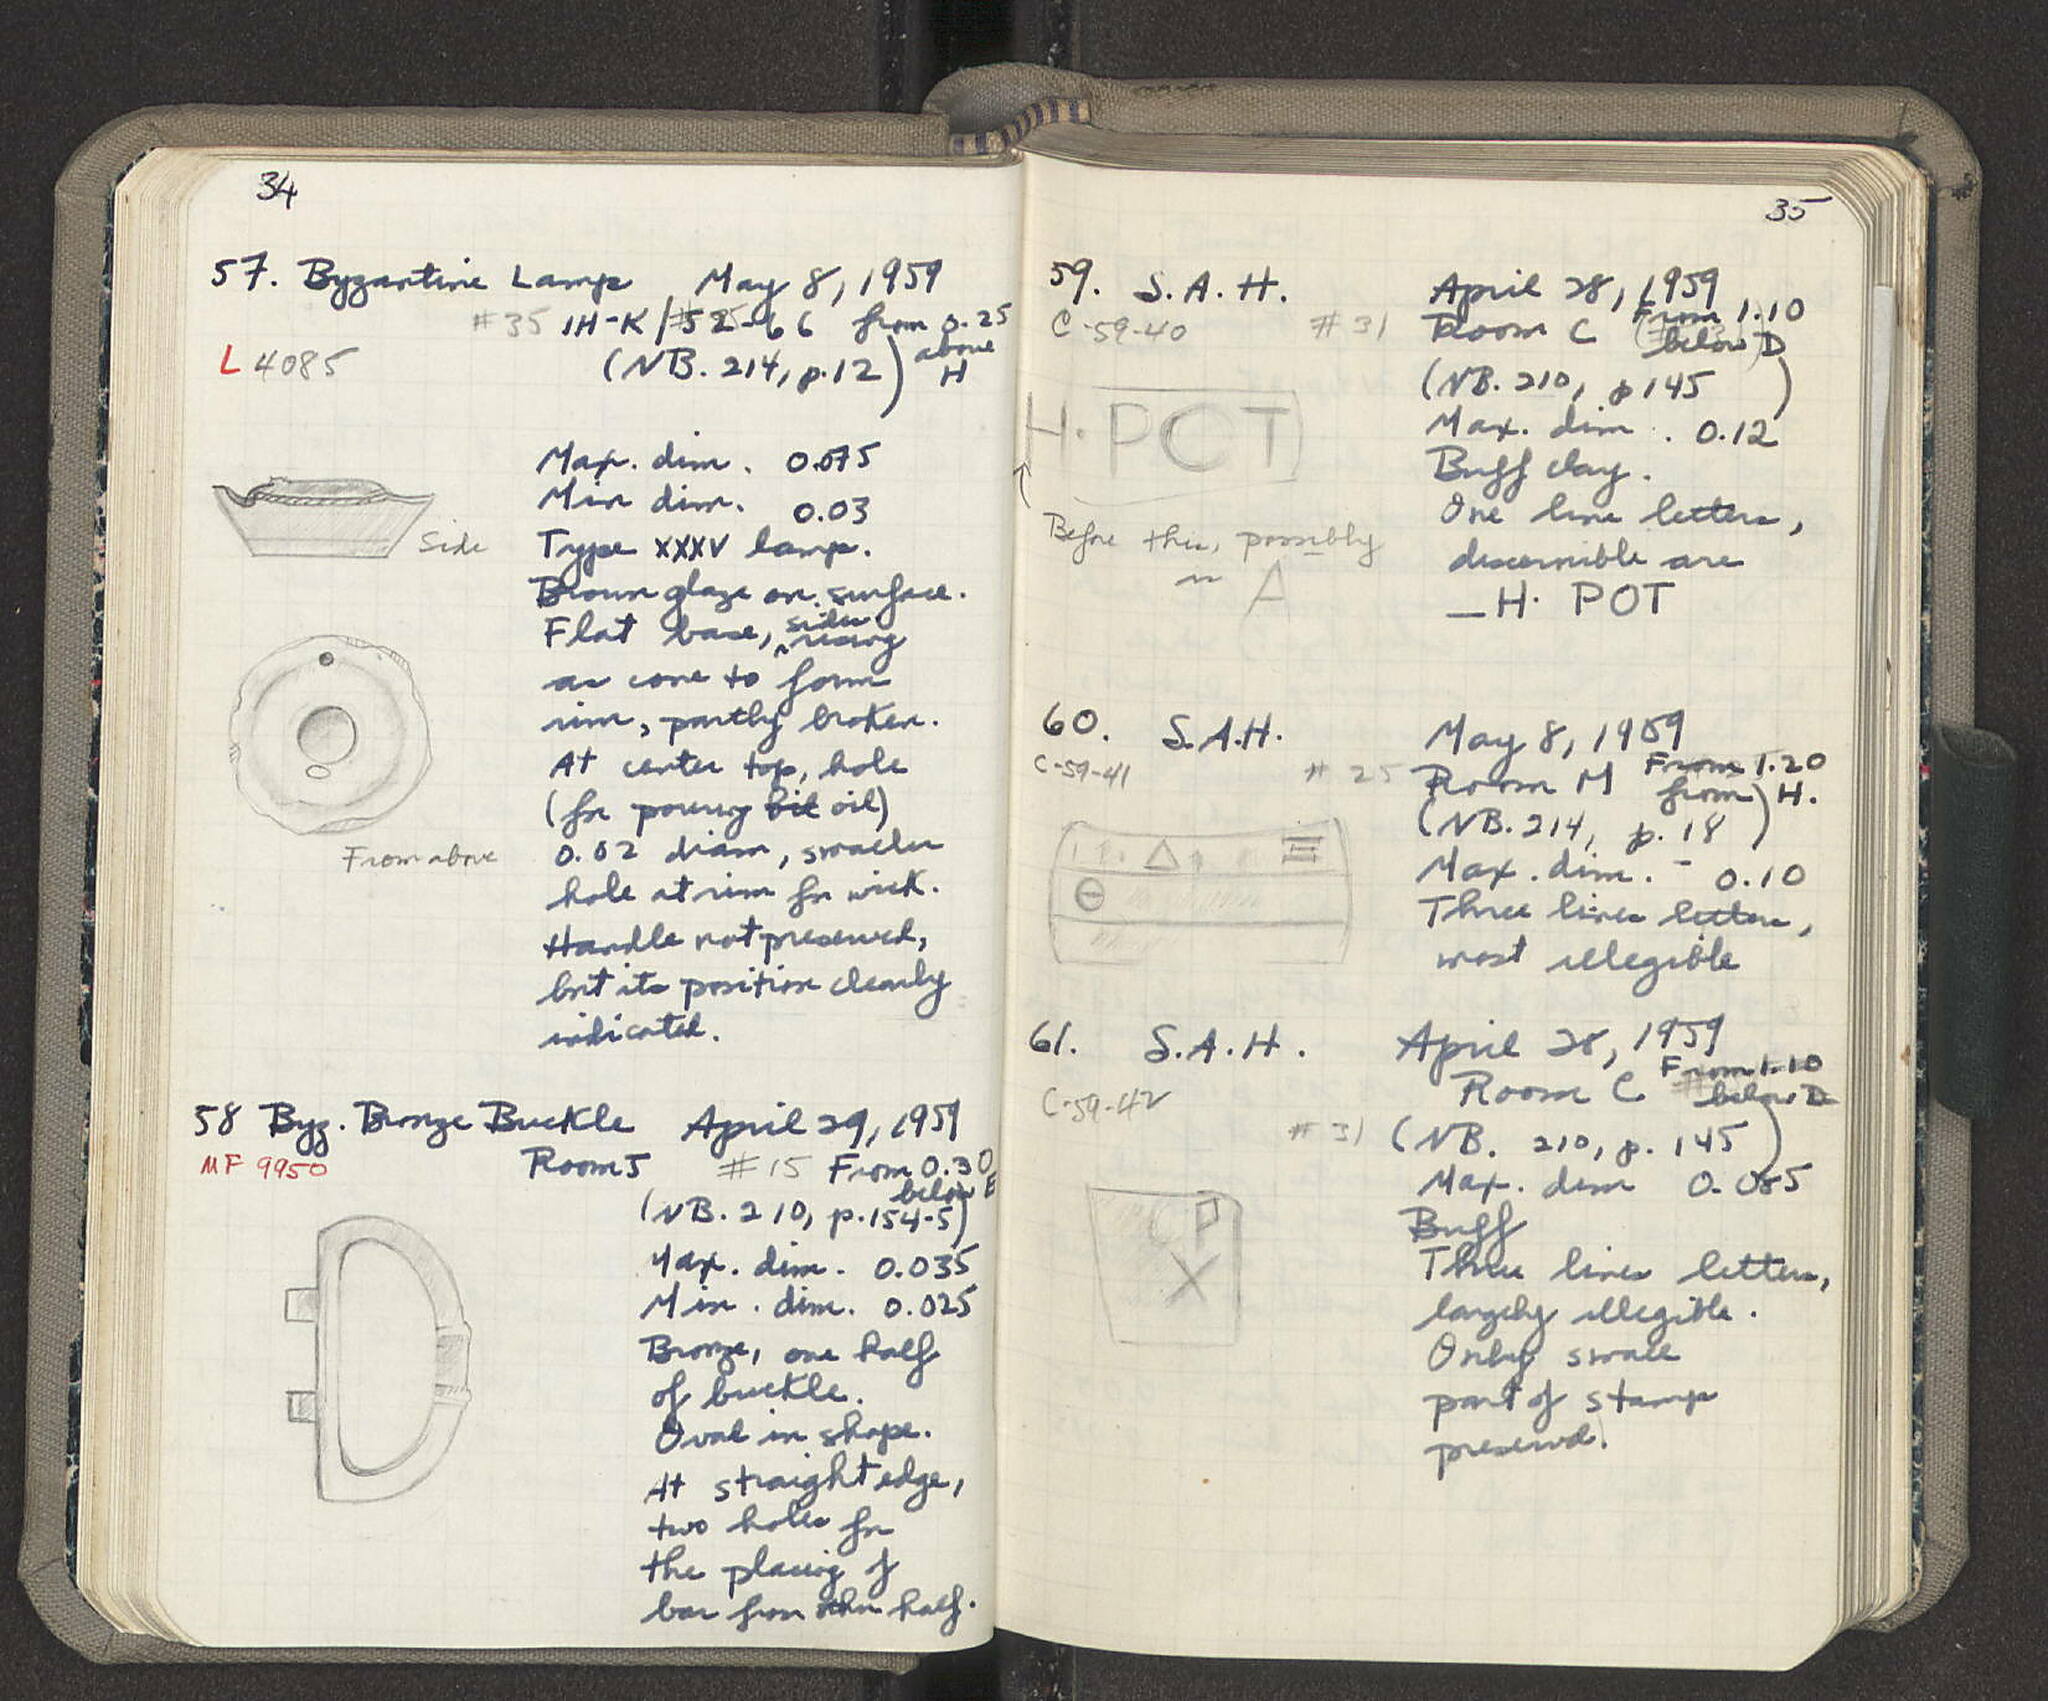 34
57. Byzantine Lamp May 8, 1959
#35 1H-K/52-66 from 0.25
above
H
L 4085 (NB. 214, p.12)
Max. dim. 0.075
Min dim. 0.03
Side
Type XXXV lamp.
Brown glaze on surface.
Flat base, sides rising
as cone to form
rim, partly broken.
At center top, hole
(for pouring oil)
0.02 diam, smaller
From above
hole at rim for wick.
Handle not preserved,
but its position clearly
indicated.
58 Byz. Bronze Buckle April 29, 1959
MF 9950 Room J #15 From 0.30
below E
(NB. 210, p.154-5)
Max. dim. 0.035
Min. dim. 0.025
Bronze, one half
of buckle.
Oval in shape.
At straight edge,
two holes for
the placing of
bar from other half.
35
59. S.A.H. April 28, 1959
C-59-40 #31 Room C From 1.10
below D
(NB. 210, p 145)
H. POT
Max. dim. 0.12
Buff clay.
Before this, possibly
A
One line letters,
discernible are
_H. POT
60. S.A.H. May 8, 1959
C-59-41 #25 Room M From 1.20
from H.
(NB. 214, p. 18)
Max. dim. - 0.10
Three lines letters,
most illegible
61. S.A.H. April 28, 1959
Room C From 1.10
below D
C-59-42
#31 (NB. 210, p. 145)
Max. dim 0.085
C P
X
Buff
Three lines letters,
largely illegible.
Only small
part of stamp
preserved.